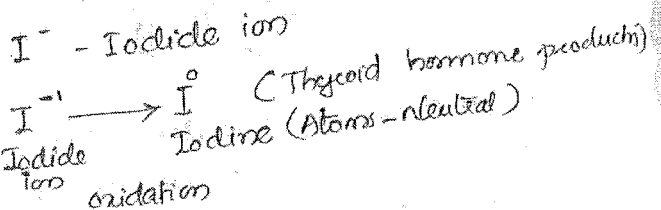 I⁻ - Iodide ion
I⁻¹ ⟶ I⁰ (Thyroid hormone production)
Iodide Iodine (Atoms - Neutral)
ion
oxidation